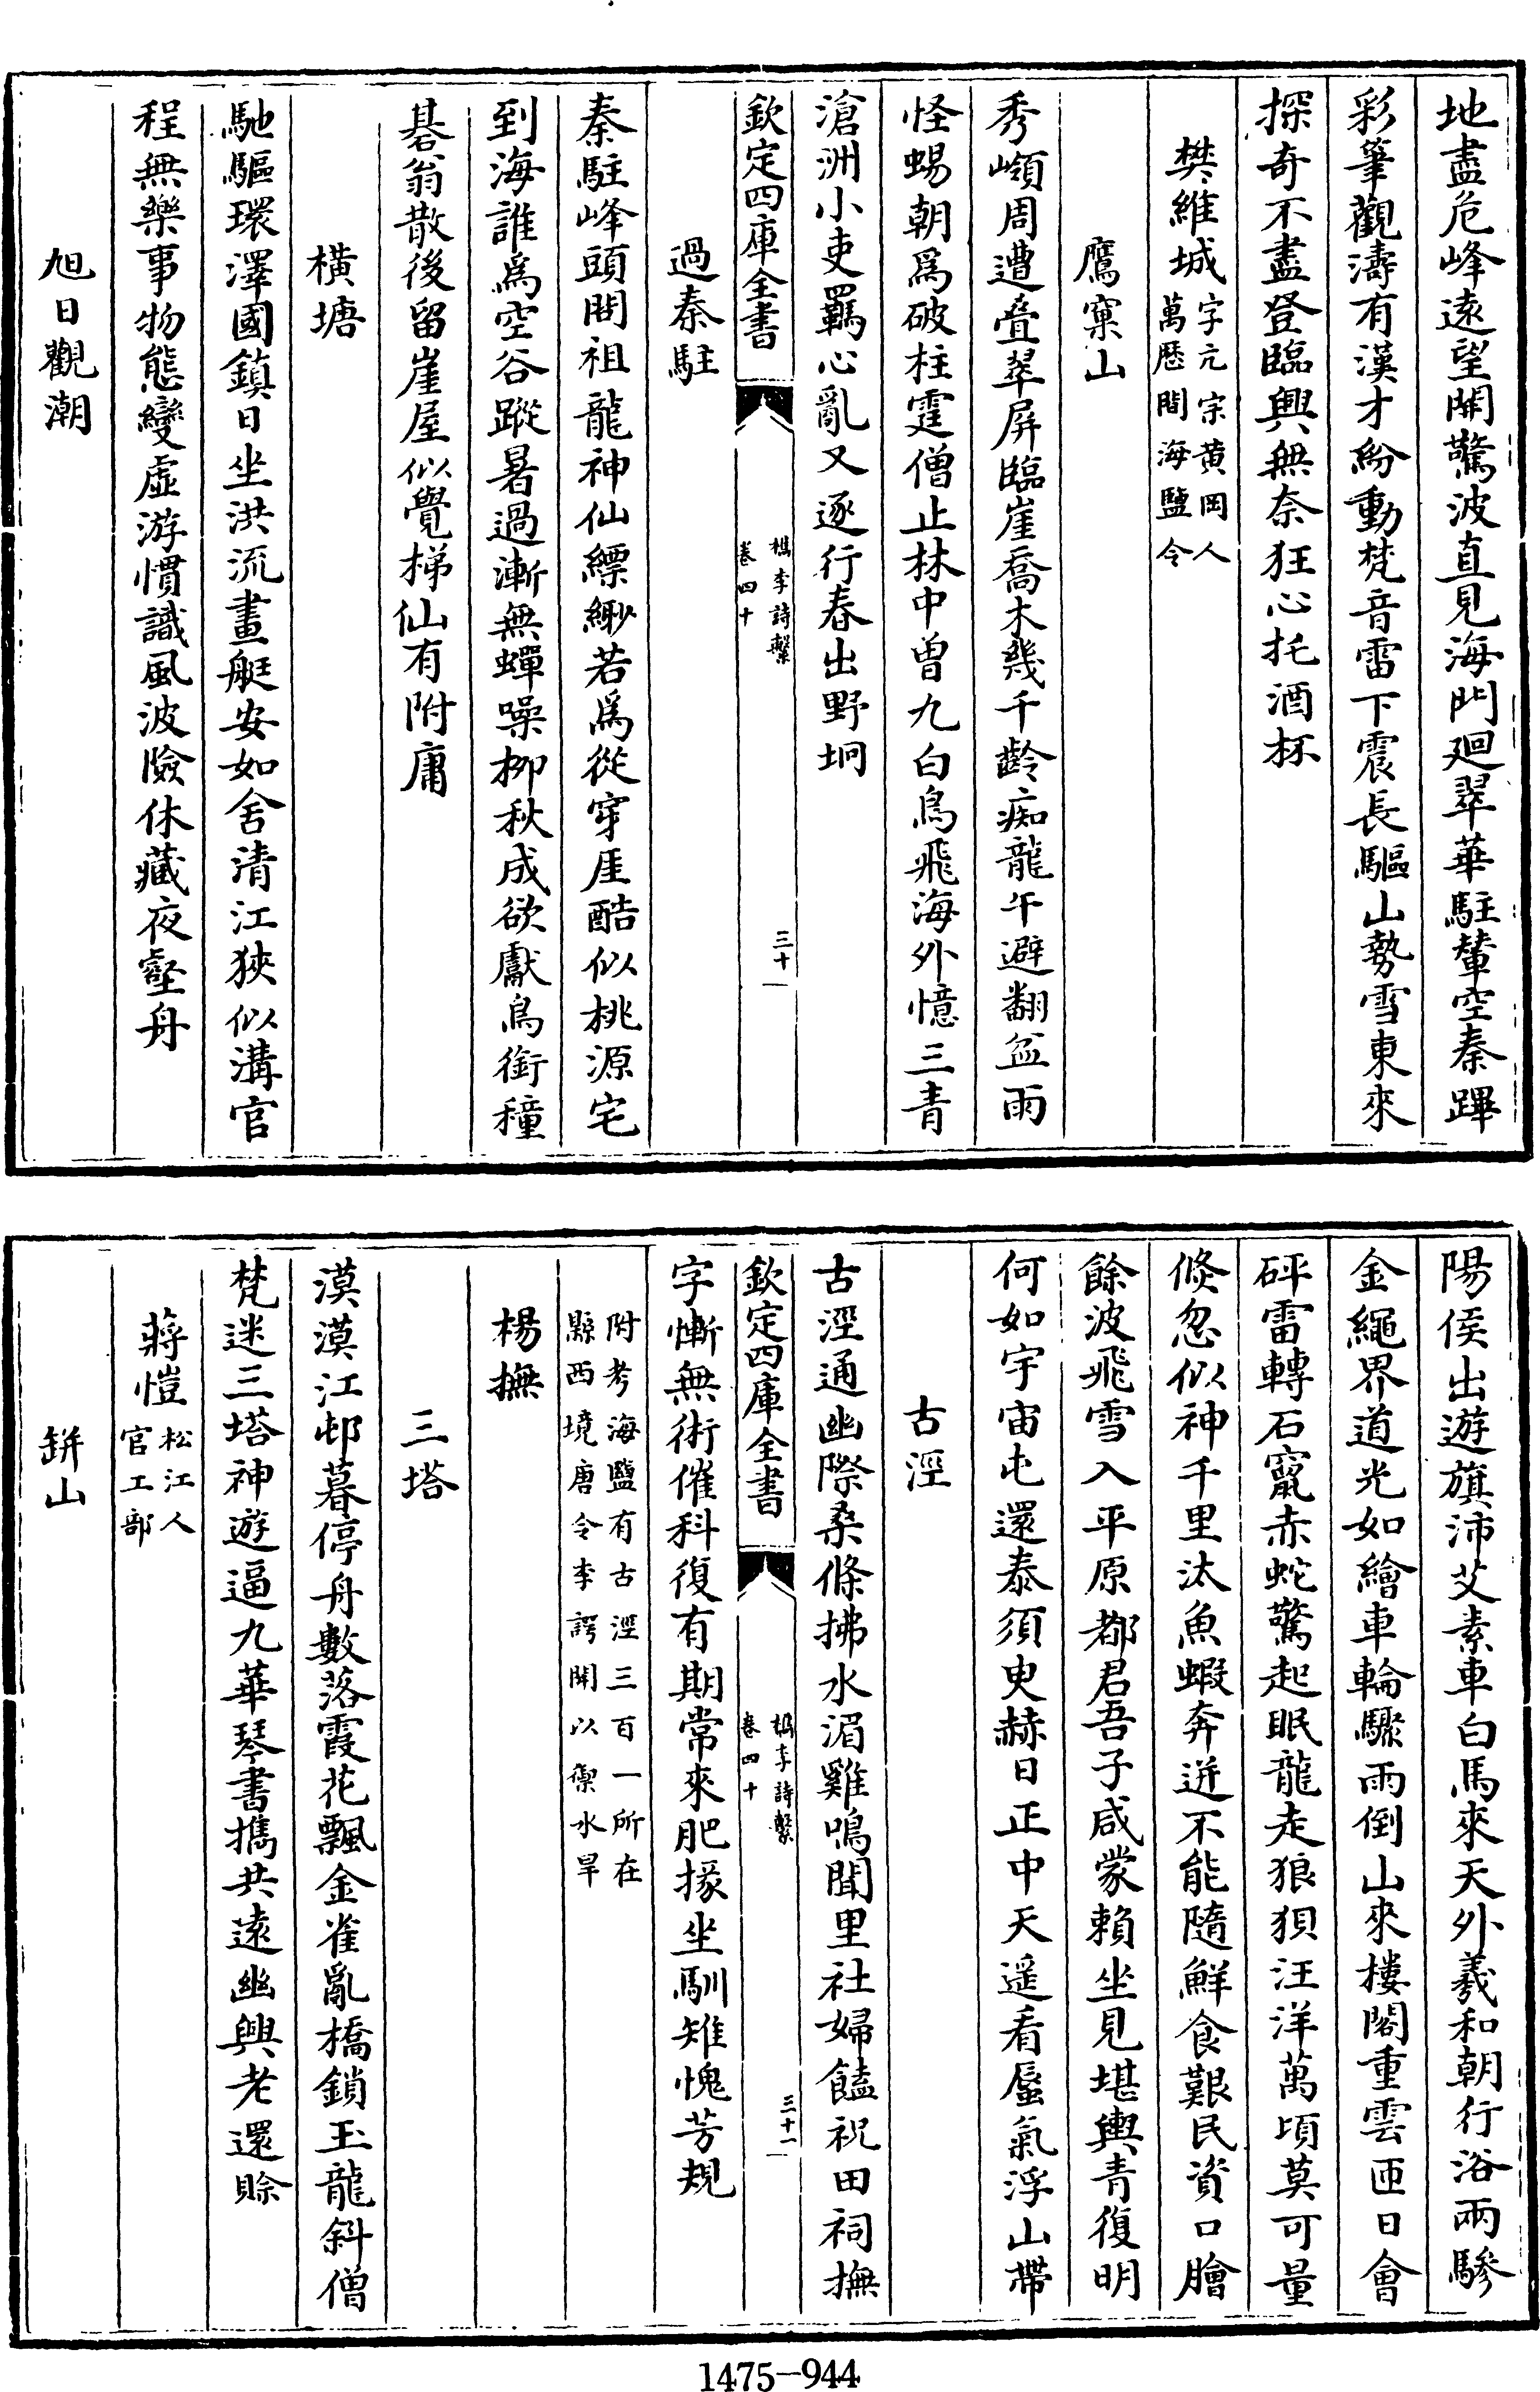 地盡危峰遠望開驚波直見海門廻翠華駐輦空秦蹕
彩筆觀濤有漢才紛動梵音雷下震長驅山勢雪東來
探奇不盡登臨興無奈狂心托酒杯
樊維城字元宗黄岡人
萬歴間海鹽令
鷹窠山
秀嶺周遭疊翠屏臨崖喬木幾千齡痴龍午避翻盆雨
怪蜴朝為破柱霆僧止林中曽九白鳥飛海外憶三青
滄洲小吏羈心亂又逐行春出野坰
欽定四庫全書
檇李詩繫
卷四十
三十一
過秦駐
秦駐峰頭閲祖龍神仙縹緲若為從穿厓酷似桃源宅
到海誰為空谷蹤暑過漸無蟬噪柳秋成欲獻鳥銜穜
碁翁散後留崖屋似覺梯仙有附庸
橫塘
馳驅環澤國鎮日坐洪流畫艇安如舍清江狹似溝官
程無樂事物態變虛游慣識風波險休藏夜壑舟
旭日觀潮
陽侯出遊旗沛艾素車白馬來天外羲和朝行浴兩驂
金繩界道光如繪車輪驟雨倒山來樓閣重雲匝日會
砰雷轉石竄赤蛇驚起眠龍走狼狽汪洋萬頃莫可量
倐忽似神千里汰魚蝦奔迸不能隨鮮食艱民資口膾
餘波飛雪入平原都君吾子咸蒙賴坐見堪輿青復明
何如宇宙屯還泰須臾赫日正中天遥看蜃氣浮山帶
古涇
古涇通幽際桑條拂水湄雞鳴聞里社婦饁祝田祠撫
欽定四庫全書
檇李詩繫
卷四十
三十一
字慚無術催科復有期常來肥掾坐馴雉愧芳規
附考海鹽有古涇三百一所在
縣西境唐令李諤開以禦水旱
楊撫
三塔
漠漠江邨暮停舟數落霞花飄金雀亂橋鎖玉龍斜僧
梵迷三塔神遊逼九華琴書擕共遠幽興老還賒
蔣愷松江人
官工部
缾山
1475-944